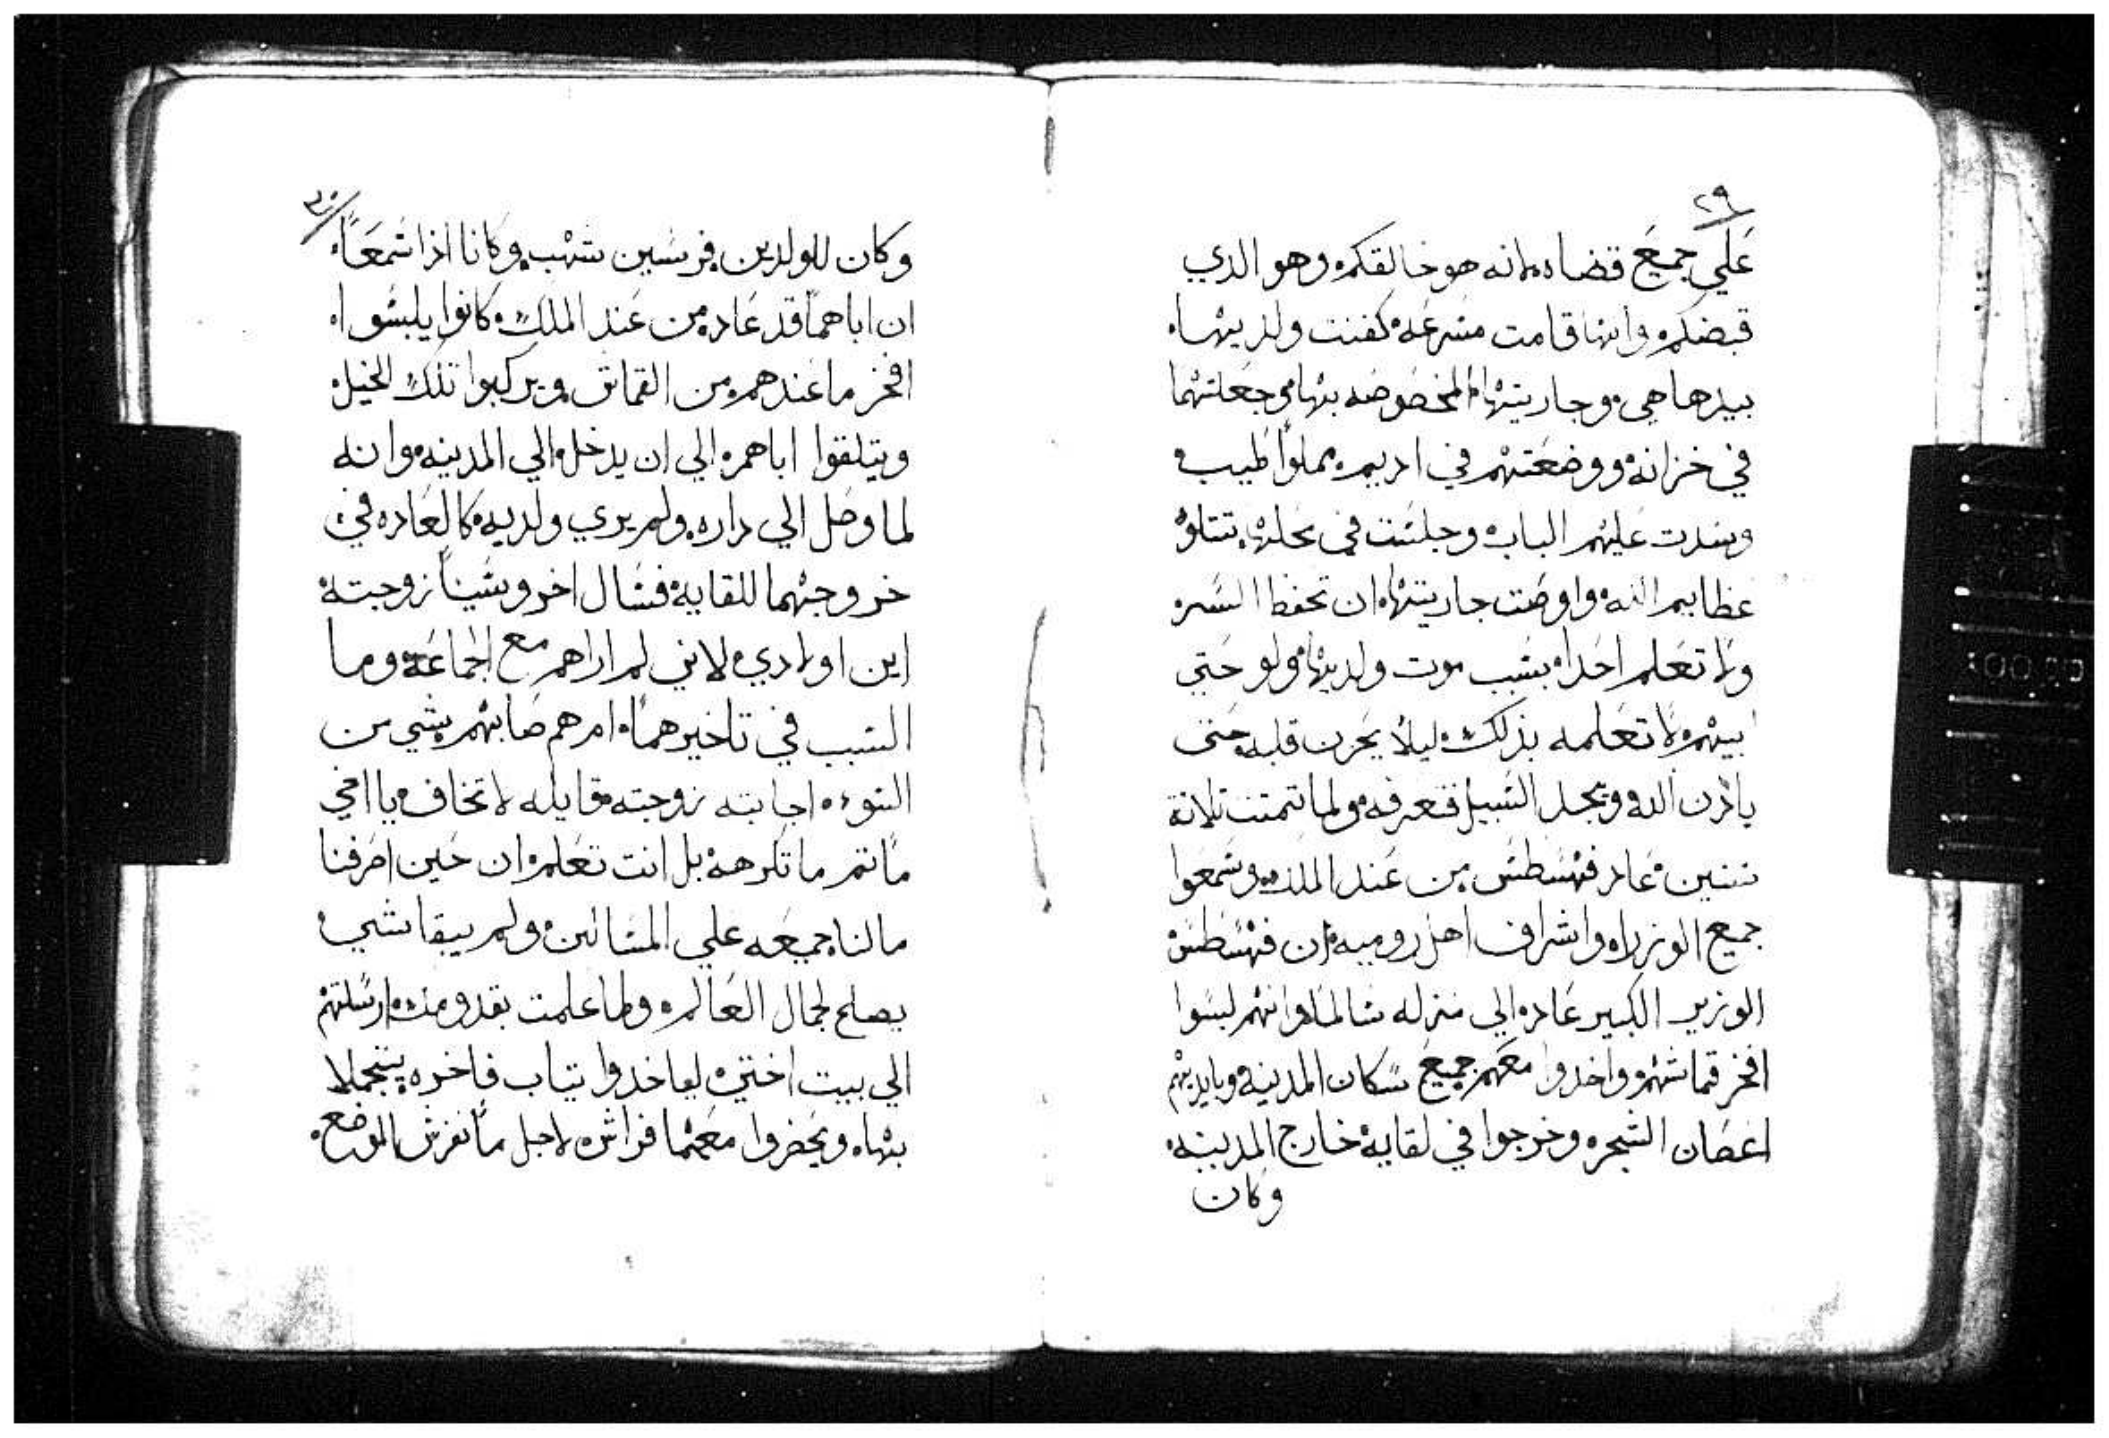 ٢٩
علي جميع قضاه لانه هو خالقكم وهو الدي
قبضكم وانها قامت مسرعه كفنت ولديها
بيدها هي وجاريتها المخصوصه بها وجعلتهما
في خزانه ووضعتهم في اديم مملوا طيب
وسدت عليهم الباب وجلست في محلها تتلوا
عظايم الله واوصت جاريتها ان تحفظ السر
ولا تعلم احدا بسبب موت ولديها ولو حتي
ابيهم لا تعلمه بذلك ليلا يحزن قلبه حتي
بادن الله ويجد السبيل فتعرفه ولما تمتت تلاتة
سنين عاد فهسطس من عند الملك وسمعوا
جميع الوزراه واشراف اهل روميه ان فهسطس
الوزير الكبير عاد الي منزله سالما وانهم لبسوا
افخر قماشهم واخدوا معهم جميع سكان المدينه وبايديهم
اغصان الشجره وخرجوا في لقايه خارج المدينه
وكان
٣٠
وكان للولدين فرسين شهب وكانا اذا سمعا
ان اباهما قد عاد من عند الملك كانوا يلبسوا
افخر ما عندهم من القماش ويركبوا تلك الخيل
ويتلقوا اباهم الي ان يدخل الي المدينه وانه
لما وصل الي داره ولم يري ولديه كالعاده في
خروجهما للقايه فسال اخروسينا زوجته
اين اولادي لاني لم اراهم مع الجماعة وما
السبب في تاخيرهما ام هم صابهم شي من
السوء اجابته زوجته قايله لا تخاف يا اخي
ما تم ما تكرهه بل انت تعلم ان حين صرفنا
مالنا جميعه علي المساكين ولم يبقا شي
يصلح لجمال العالم ولما علمت بقدومك ارسلتهم
الي بيت اختي لياخدوا تياب فاخره يتجملا
بها ويحضروا معهما فراش لاجل ما نفرش الموضع